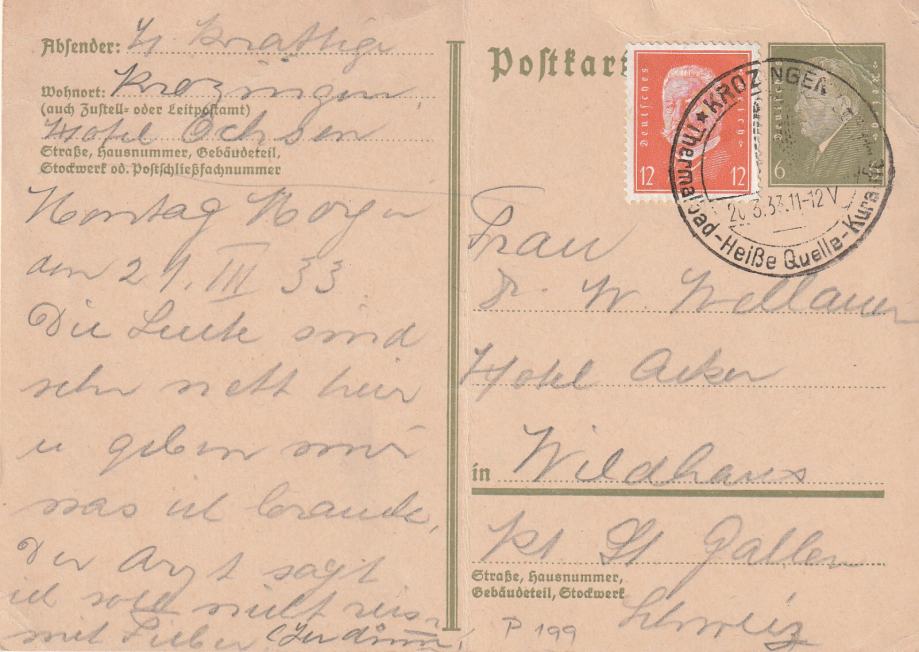 Absender: H. Krattige
Wohnort: Krozingen,
(auch Zustell- oder Leitpostamt)
Hotel Ochsen
Straße, Hausnummer, Gebäudeteil,
Stockwerk od. Postschließfachnummer
Montag Morgen
den 21. III 33.
Die Leute sind
sehr nett hier
u geben mir
was ich brauche,
Der Arzt sagt
ich soll nicht reis-
mit Fieber
Postkart
Deutsches Reich
12 12
6
KROZINGEN
20.3.33.11-12V
Thermalbad-Heiße Quelle-Kurs
Frau
Dr. W. Wellauer
Hotel Acker
in Wildhaus
Kt St Gallen
Straße, Hausnummer,
Gebäudeteil, Stockwerk
Schweiz
P 199